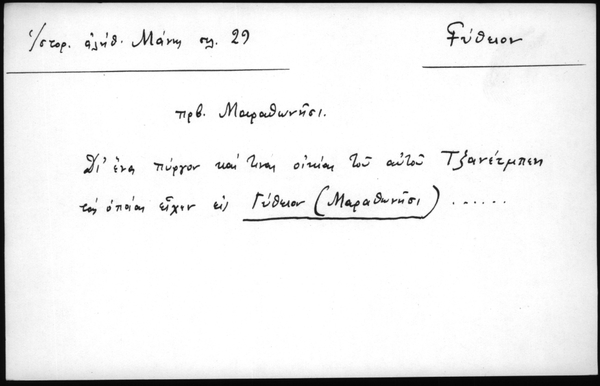 Ἱστορ. ἀλήθ. Μάνης σελ. 29
Γύθειον
πρβ. Μαραθωνῆσι.
Δι' ἕνα πύργον καί τινας οἰκίας τοῦ αὐτοῦ Τζανέτμπεη
τάς ὁποίας εἶχεν εἰς Γύθειον (Μαραθωνῆσι) ......